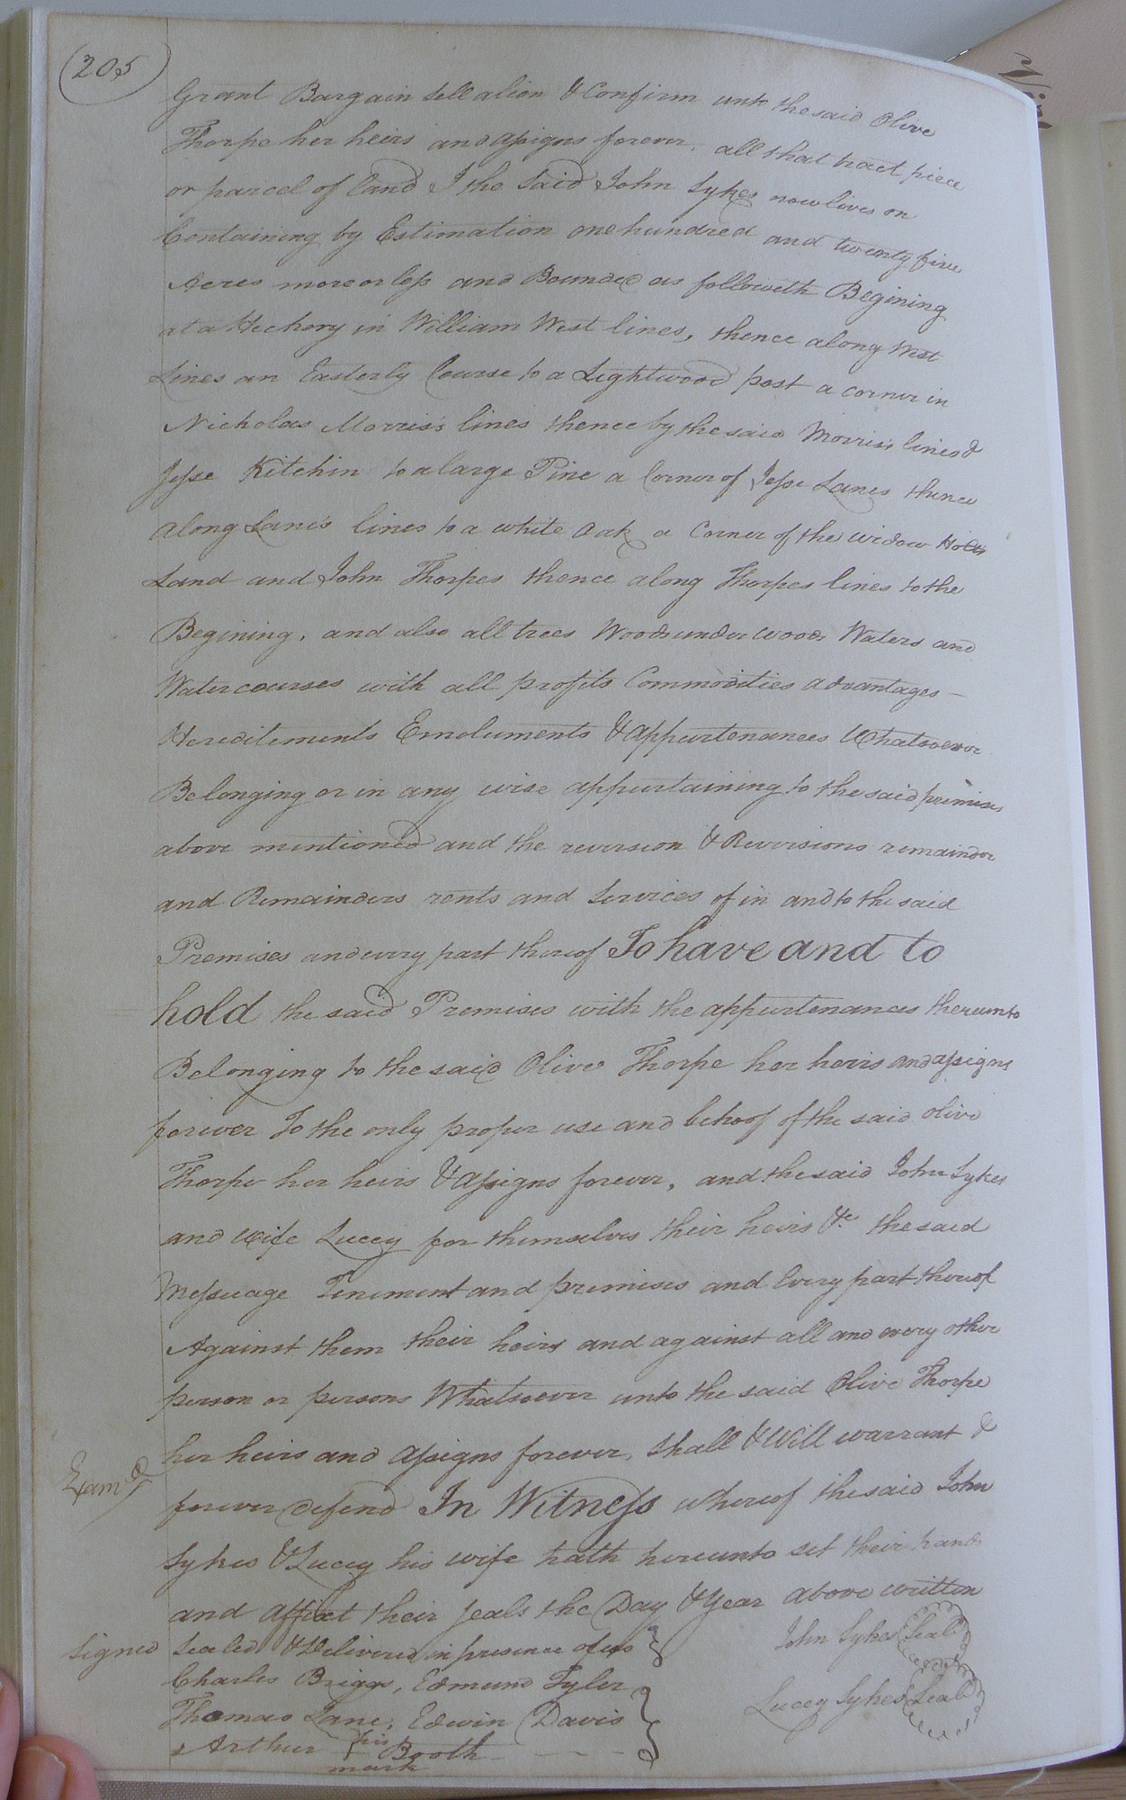 (205)
Grant Bargain sell alien & Confirm unto the said Olive
Thorpe her heirs and assigns forever, all that tract piece
or parcel of land I the said John Sykes now lives on
Containing by Estimation one hundred and twenty five
Acres more or less and Bounded as followeth Begining
at a Heckory in William West lines, thence along West
Lines an Easterly Course to a Lightwood post a corner in
Nicholas Morris's lines thence by the said Morris's lines &
Jesse Kitchin to a large Pine a Corner of Jesse Lanes thence
along Lane's lines to a white Oak a Corner of the widow Holts
Land and John Thorpes thence along Thorpes lines to the
Begining, and also all trees Woods under woods Waters and
Water courses with all profits Commodities advantages
Hereditements Emoluments & appurtenances Whatsoever
Belonging or in any wise appurtaining to the said premises
above mentioned and the reversion & Reversions remainder
and Remainders rents and Services of in and to the said
Premises and every part thereof To have and to
hold the said Premises with the appurtenances thereunto
Belonging to the said Olive Thorpe her heirs and assigns
forever To the only proper use and behoof of the said olive
Thorpe her heirs & assigns forever, and the said John Sykes
and wife Lucey for themselves their heirs &c the said
Messuage Tenement and premises and Every part thereof
Against them their heirs and against all and every other
person or persons Whatsoever unto the said Olive Thorpe
her heirs and assigns forever, shall & Will warrant &
Exam.d forever defend In Witness whereof the said John
Sykes & Lucey his wife hath hereunto set their hands
and affixt their seals the Day & Year above written
Signed Sealed & Delivered in presence of us } John Sykes Seal
Charles Briggs, Edmund Tyler
Thomas Lane, Edwin Davis } Lucey Sykes Seal
& Arthur his Booth
mark